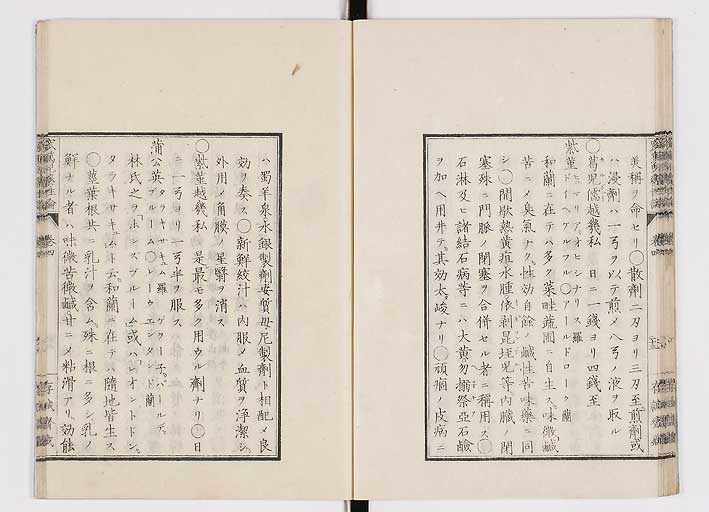 兼稱ヲ命セリ○散劑二刄ヨリ三刄至煎劑或
ハ浸劑ハ一弓ヲ以テ煎〆八弓ノ液ヲ取ル
○葛児儒越幾私 日ニ一錢ヨリ四錢至
紫菫 オヒシナリス羅
ドイヘケルフル○アールドローク蘭
和蘭ニ在テハ多ク菜畦蔬圃ニ自生ス味微鹹
苦ニ〆臭氣ナク性効自餘ノ鹹性苦味藥ニ同
シ○間歇熱黄疸水腫依剥昆垤児等内臓ノ閉
塞殊ニ門脈ノ閉塞ヲ合併セル者ニ稱用ス○
石淋及ヒ諸結石病等ニハ大黄勿搦祭亞石鹼
ヲ加ヘ用井テ其効太峻ナリ○頑痼ノ皮病ニ
ハ蜀羊泉水銀製劑安質母尼製劑ト相配〆良
効ヲ奏ス○新鮮絞汁ハ内服〆血質ヲ淨潔シ
外用〆角膜ノ星翳ヲ消ス
○紫菫越幾私 是最モ多ク用ウル劑ナリ 日
ニ一弓ヨリ一弓半ヲ服ス
蒲公英 タラキサキュム羅
林氏之ヲホンズブルーム或ハレオントドン
タラキサキュムト云和蘭ニ在テハ隨地皆生ス
○莖葉根共ニ乳汁ヲ含ム殊ニ根ニ多シ乳ノ
鮮ナル者ハ味微苦微鹹甘ニ〆粘滑アリ効能
卷四